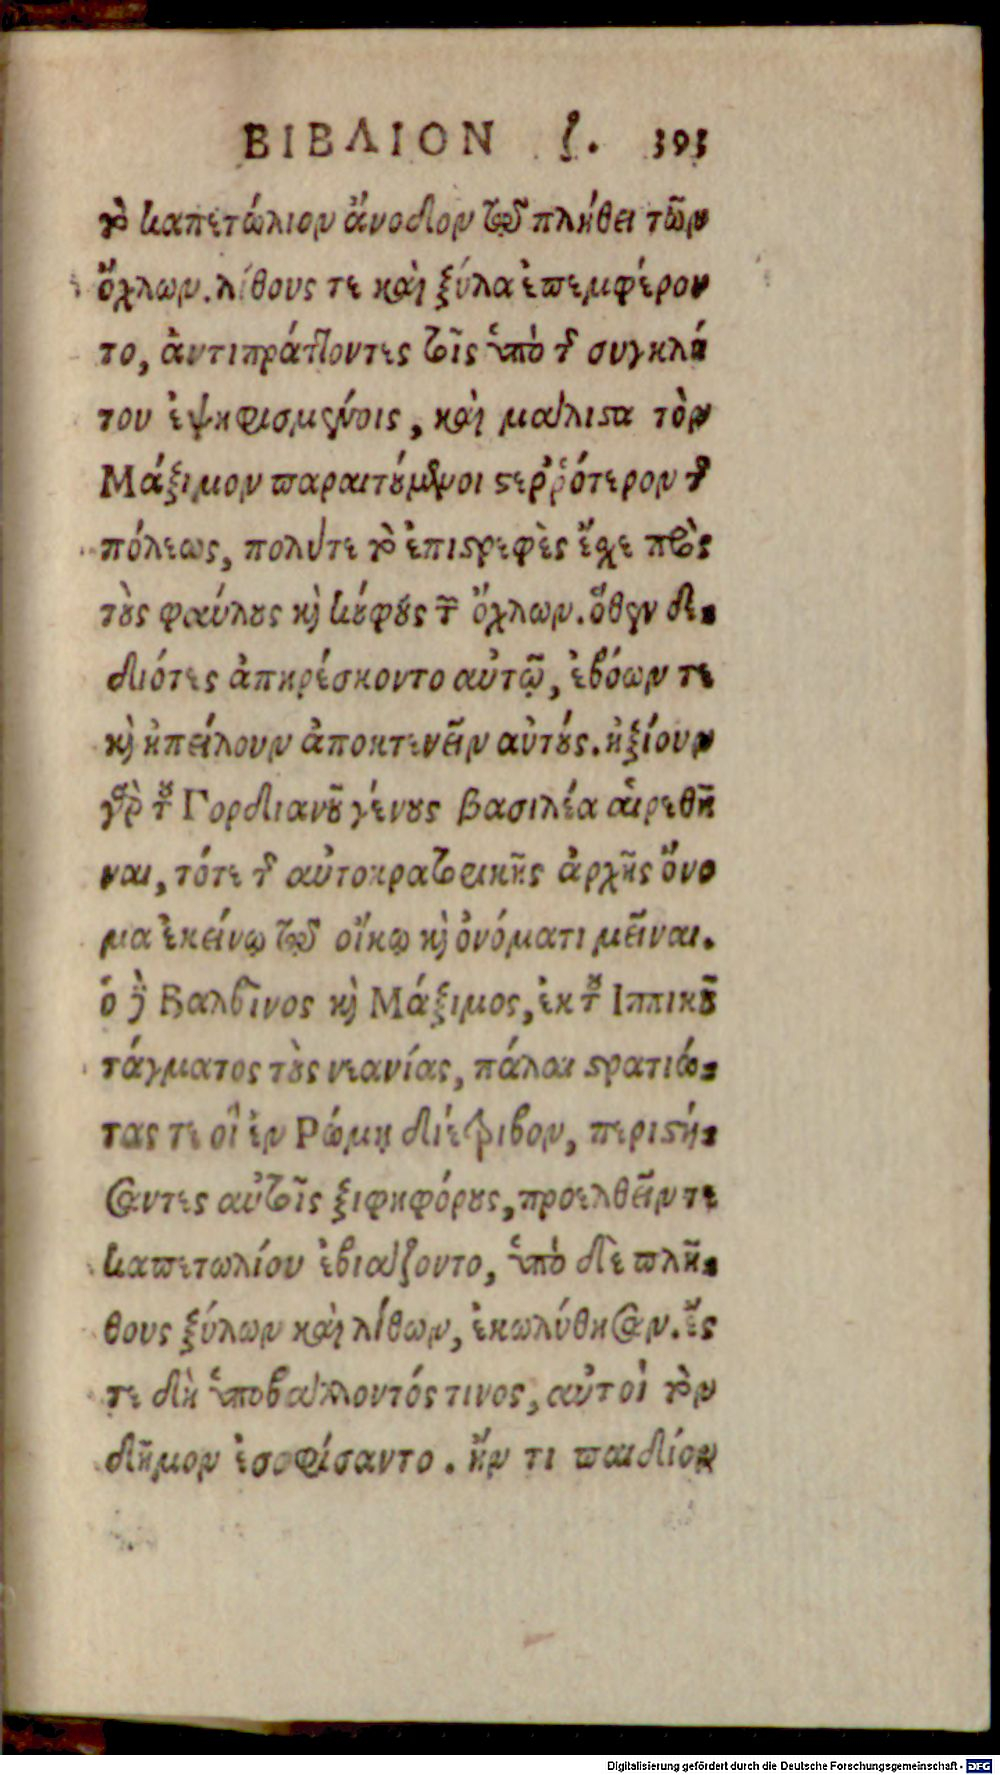 ΒΙΒΛΙΟΝ ζ. 393
τὸ καπετώλιον ἄνοδον τῷ πλήθει τῶν
ὄχλων. λίθους τε καὶ ξύλα ἐπεμφέρον
το, ἀντιπράττοντες τοῖς ὑπὸ τῆς συγκλή
του ἐψηφισμένοις, καὶ μάλιστα τὸν
Μάξιμον παραιτούμενοι στερρότερον τῆς
πόλεως, πολύ τε τὸ ἐπιστρεφὲς ἔχε πρὸς
τοὺς φαύλους καὶ κούφους τῶν ὄχλων. ὅθεν δε-
διότες ἀπηρέσκοντο αὐτῷ, ἐβόων τε
καὶ ἠπείλουν ἀποκτενεῖν αὐτούς. ἠξίουν
γὰρ τοῦ Γορδιανοῦ γένους βασιλέα αἱρεθῆ
ναι, τότε τῆς αὐτοκρατορικῆς ἀρχῆς ὄνο
μα ἐκείνῳ τῷ οἴκῳ καὶ ὀνόματι μεῖναι.
ὁ δὲ Βαλβῖνος καὶ Μάξιμος, ἐκ τοῦ Ιππικοῦ
τάγματος τοὺς νεανίας, πάλαι στρατιώ-
τας τε οἳ ἐν Ρώμῃ διέτριβον, περιστή-
σαντες αὑτοῖς ξιφηφόρους, προελθεῖν τε
καπετωλίου ἐβιάζοντο, ὑπὸ δὲ πλή-
θους ξύλων καὶ λίθων, ἐκωλύθησαν. ἔς
τε δὴ ὑποβάλλοντός τινος, αὐτοὶ τὸν
δῆμον ἐσοφίσαντο. ἦν τι παιδίον
Digitalisierung gefördert durch die Deutsche Forschungsgemeinschaft - DFG